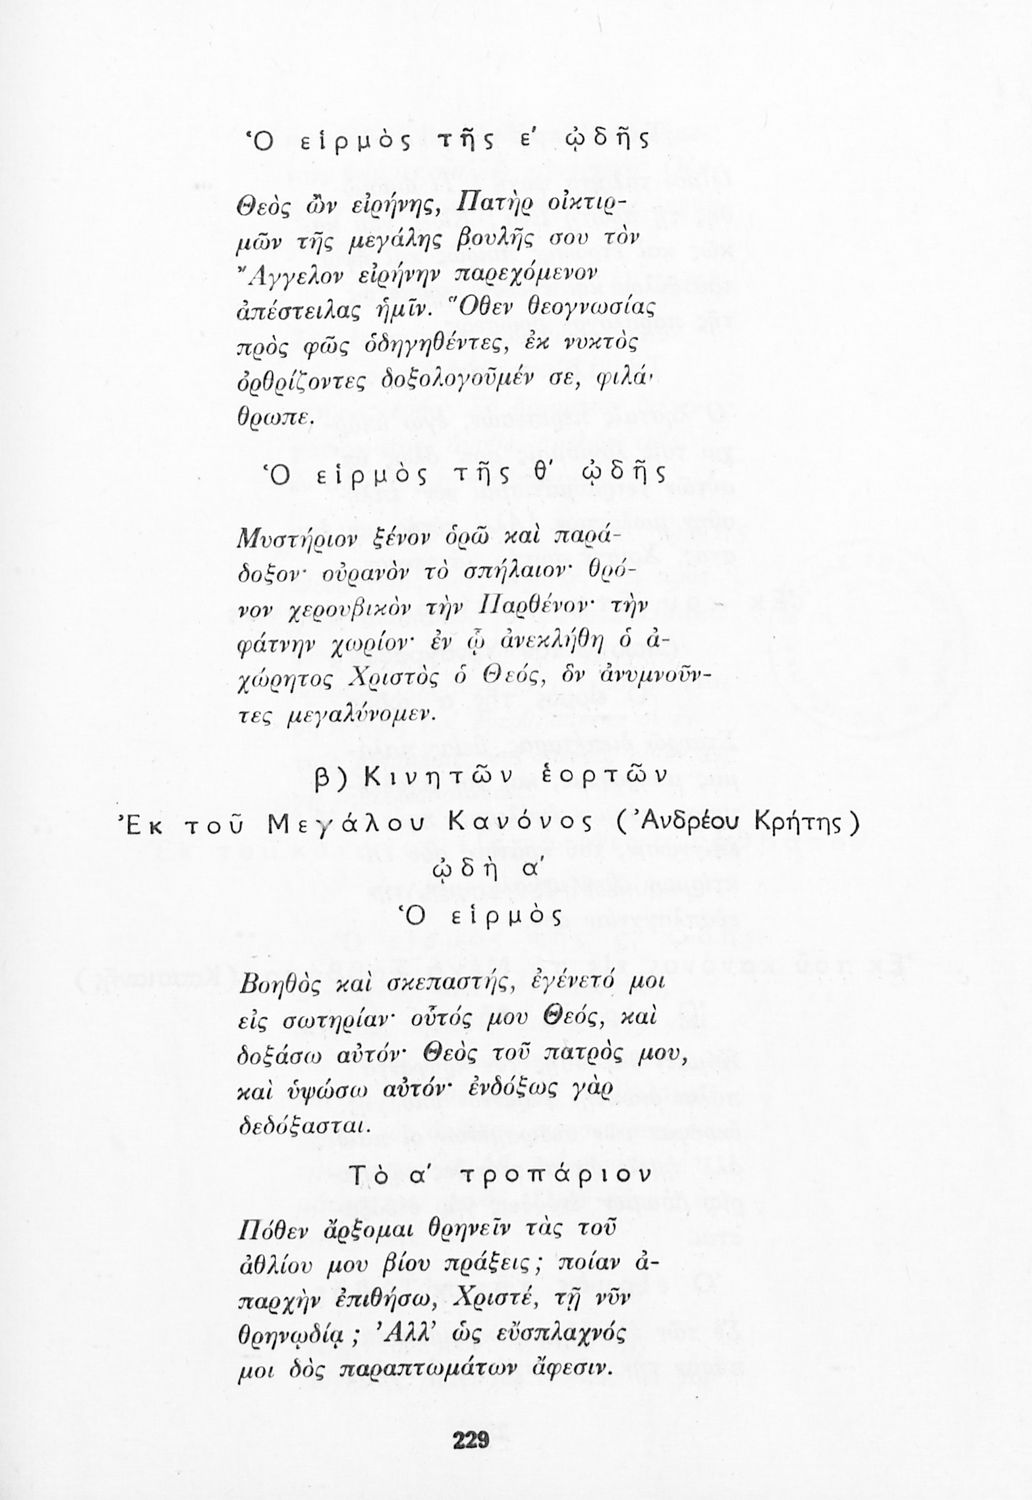 Ὁ εἱρμὸς τῆς ε' ᾠδῆς
Θεὸς ὢν εἰρήνης, Πατὴρ οἰκτιρ-
μῶν τῆς μεγάλης βουλῆς σου τὸν
Ἄγγελον εἰρήνην παρεχόμενον
ἀπέστειλας ἡμῖν. Ὅθεν θεογνωσίας
πρὸς φῶς ὁδηγηθέντες, ἐκ νυκτὸς
ὀρθρίζοντες δοξολογοῦμέν σε, φιλά-
θρωπε.
Ὁ εἱρμὸς τῆς θ' ᾠδῆς
Μυστήριον ξένον ὁρῶ καὶ παρά-
δοξον· οὐρανὸν τὸ σπήλαιον· θρό-
νον χερουβικὸν τὴν Παρθένον· τὴν
φάτνην χωρίον· ἐν ᾧ ἀνεκλήθη ὁ ἀ-
χώρητος Χριστὸς ὁ Θεός, ὃν ἀνυμνοῦν-
τες μεγαλύνομεν.
β) Κινητῶν ἑορτῶν
Ἐκ τοῦ Μεγάλου Κανόνος (Ἀνδρέου Κρήτης)
ᾠδὴ α'
Ὁ εἱρμὸς
Βοηθὸς καὶ σκεπαστής, ἐγένετό μοι
εἰς σωτηρίαν· οὗτός μου Θεός, καὶ
δοξάσω αὐτόν· Θεὸς τοῦ πατρὸς μου,
καὶ ὑψώσω αὐτόν· ἐνδόξως γὰρ
δεδόξασται.
Τὸ α' τροπάριον
Πόθεν ἄρξομαι θρηνεῖν τὰς τοῦ
ἀθλίου μου βίου πράξεις; ποίαν ἀ-
παρχὴν ἐπιθήσω, Χριστέ, τῇ νῦν
θρηνῳδίᾳ; Ἀλλ' ὡς εὔσπλαχνός
μοι δὸς παραπτωμάτων ἄφεσιν.
229